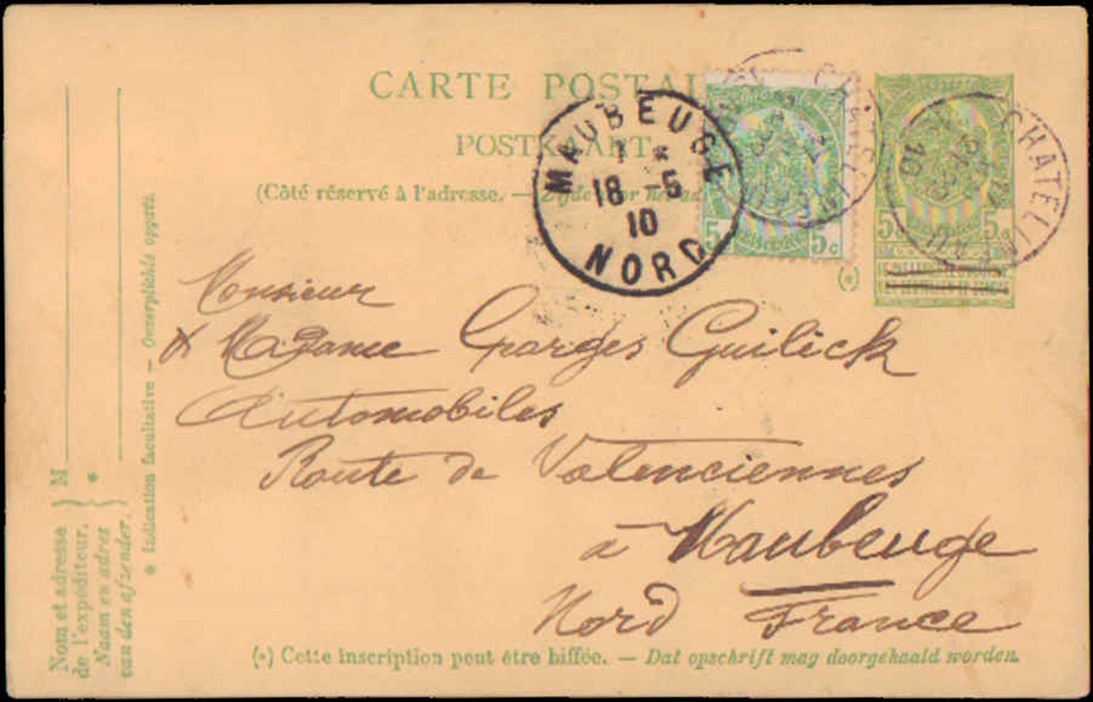 CARTE POSTAL
POSTKAART
(Côté réservé à l'adresse. — Zijde voor het ad
MAUBEUGE
1 *
18 - 5
10
NORD
CHATELINEAU
5c 5c
CHATELINEAU
10
5c
(*)
Monsieur
& Madame Georges Guilick
Automobiles
Route de Valenciennes
à Maubeuge
Nord France
(*) Cette inscription peut être biffée. — Dat opschrift mag doorgehaald worden.
M
*
Nom et adresse
de l'expéditeur.
Naam en adres
van den afzender.
* Indication facultative — Onverplichte opgave.